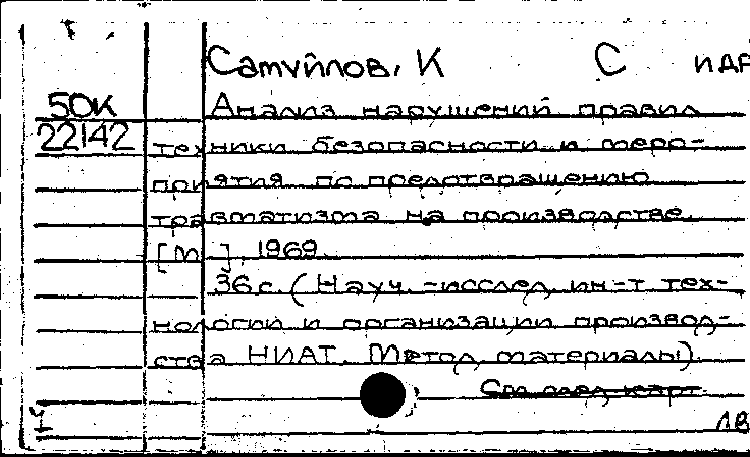 Самуйлов, К С
50К Анализ нарушений правил
22142 техники безопасности и меро-
приятия по предотвращению
травматизма на производстве.
[М.], 1969.
36 с. (Науч.-исслед. ин-т тех-
нологии и организации производ-
ства НИАТ. Метод. материалы)
См. след. карт.